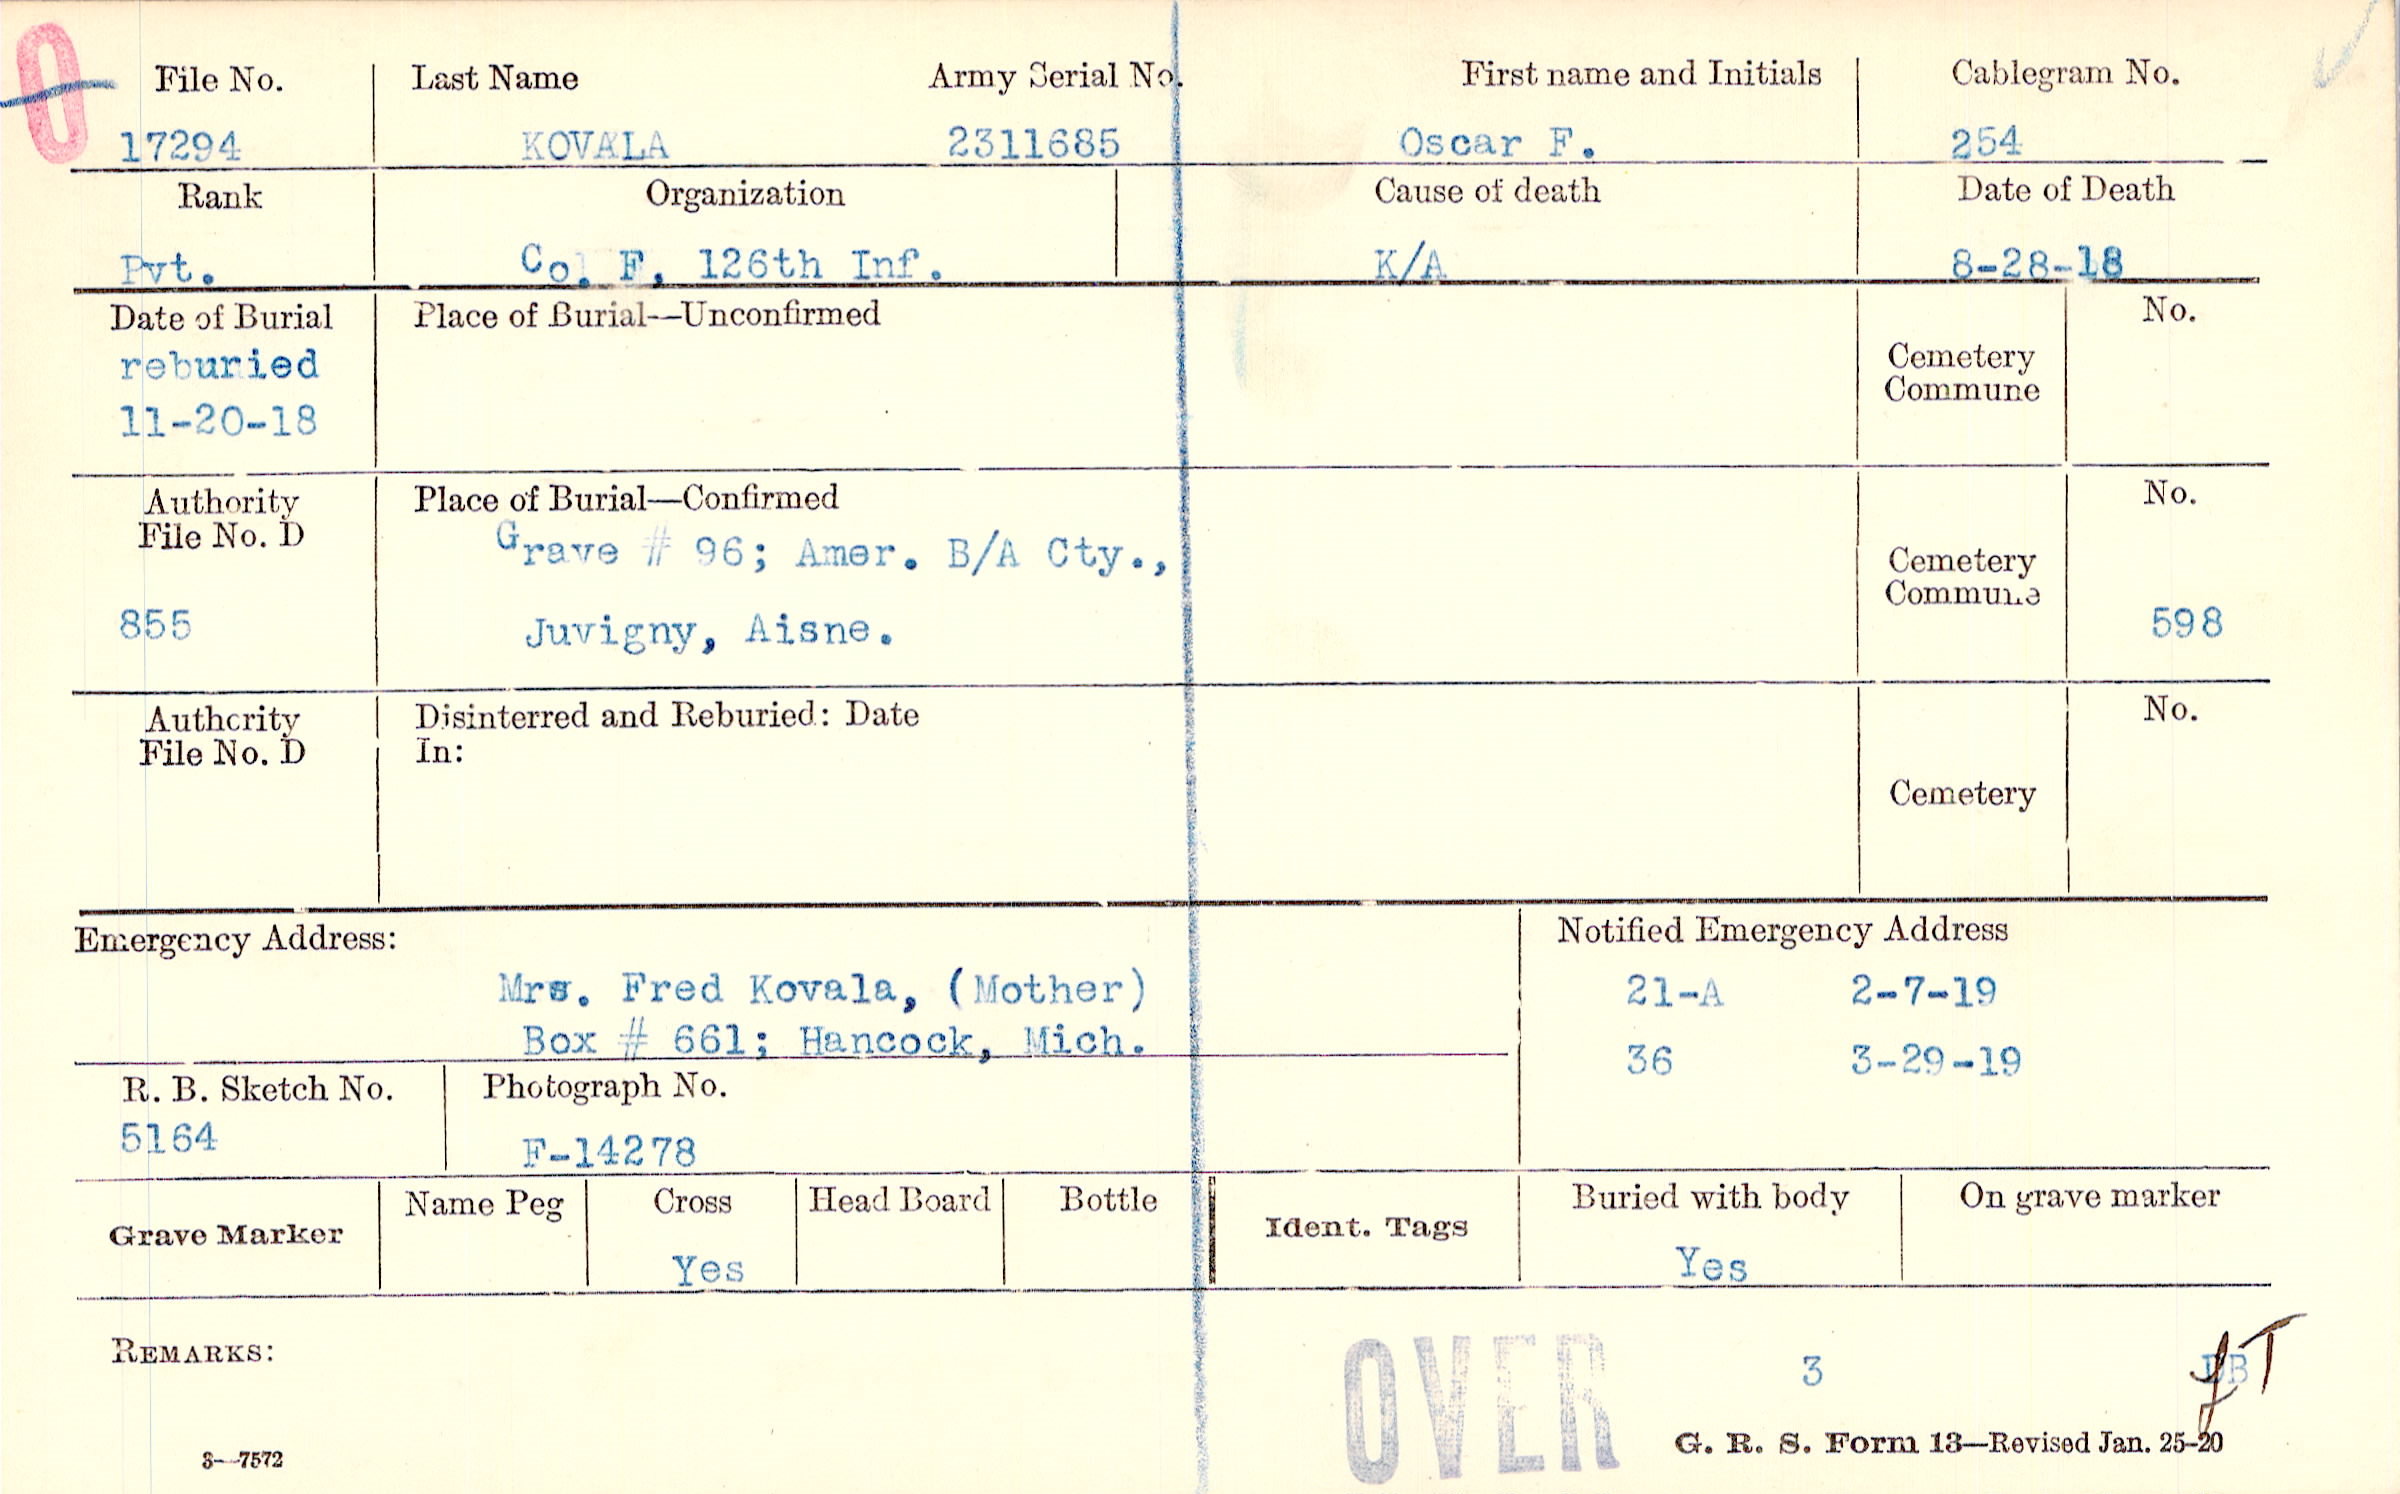 0
File No. Last Name Army Serial No. First name and Initials Cablegram No.
17294 KOVALA 2311685 Oscar F. 254
Rank Organization Cause of death Date of Death
Pvt. Co. F, 126th Inf. K/A 8-28-18
Date of Burial Place of Burial—Unconfirmed No.
reburied
11-20-18
Cemetery
Commune
Authority Place of Burial—Confirmed No.
File No. D
Grave # 96; Amer. B/A Cty.,
Cemetery
Commune
855 Juvigny, Aisne. 598
Authority Disinterred and Reburied: Date No.
File No. D In:
Cemetery
Emergency Address: Notified Emergency Address
Mrs. Fred Kovala, (Mother) 21-A 2-7-19
Box # 661; Hancock, Mich. 36 3-29-19
R. B. Sketch No. Photograph No.
5164 F-14278
Grave Marker Name Peg Cross Head Board Bottle Ident. Tags Buried with body On grave marker
Yes Yes
REMARKS:
OVER 3
3—7572
G. R. S. Form 13—Revised Jan. 25-20